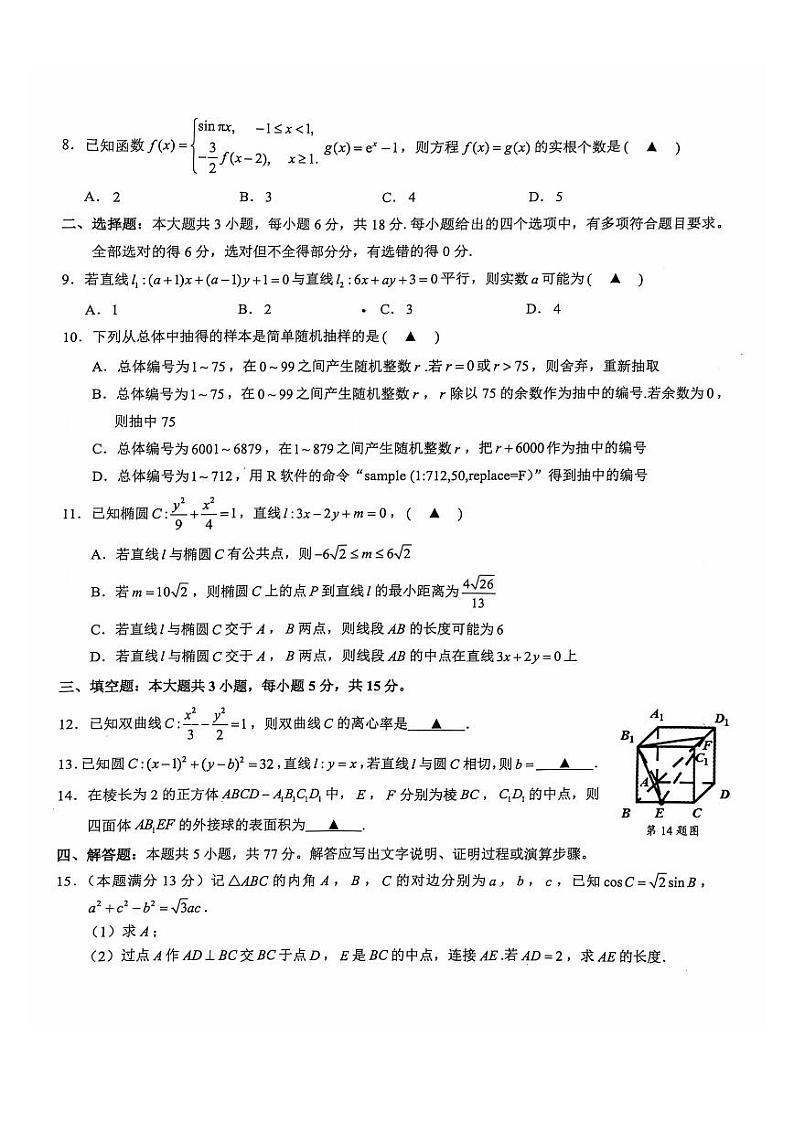 8. 已知函数 f(x)={sin πx, -1≤x<1, -3/2 f(x-2), x≥1. g(x)=eˣ-1，则方程 f(x)=g(x) 的实根个数是( ▲ )
A. 2 B. 3 C. 4 D. 5
二、选择题：本大题共 3 小题，每小题 6 分，共 18 分. 每小题给出的四个选项中，有多项符合题目要求。
全部选对的得 6 分，选对但不全得部分分，有选错的得 0 分.
9. 若直线 l₁:(a+1)x+(a-1)y+1=0 与直线 l₂:6x+ay+3=0 平行，则实数 a 可能为( ▲ )
A. 1 B. 2 C. 3 D. 4
10. 下列从总体中抽得的样本是简单随机抽样的是( ▲ )
A. 总体编号为 1~75，在 0~99 之间产生随机整数 r .若 r=0 或 r>75，则舍弃，重新抽取
B. 总体编号为 1~75，在 0~99 之间产生随机整数 r，r 除以 75 的余数作为抽中的编号.若余数为 0，
则抽中 75
C. 总体编号为 6001~6879，在 1~879 之间产生随机整数 r，把 r+6000 作为抽中的编号
D. 总体编号为 1~712，用 R 软件的命令“sample (1:712,50,replace=F)”得到抽中的编号
11. 已知椭圆 C: y²/9 + x²/4 =1，直线 l:3x-2y+m=0，( ▲ )
A. 若直线 l 与椭圆 C 有公共点，则 -6√2≤m≤6√2
B. 若 m=10√2，则椭圆 C 上的点 P 到直线 l 的最小距离为 4√26/13
C. 若直线 l 与椭圆 C 交于 A，B 两点，则线段 AB 的长度可能为 6
D. 若直线 l 与椭圆 C 交于 A，B 两点，则线段 AB 的中点在直线 3x+2y=0 上
三、填空题：本大题共 3 小题，每小题 5 分，共 15 分。
12. 已知双曲线 C: x²/3 - y²/2 =1，则双曲线 C 的离心率是 ▲ .
13. 已知圆 C:(x-1)²+(y-b)²=32,直线 l:y=x,若直线 l 与圆 C 相切,则 b= ▲ .
14. 在棱长为 2 的正方体 ABCD-A₁B₁C₁D₁ 中，E，F 分别为棱 BC，C₁D₁ 的中点，则
四面体 AB₁EF 的外接球的表面积为 ▲ .
A₁ D₁
B₁ F
C₁
A D
B E C
第 14 题图
四、解答题：本题共 5 小题，共 77 分。解答应写出文字说明、证明过程或演算步骤。
15.（本题满分 13 分）记 △ABC 的内角 A，B，C 的对边分别为 a，b，c，已知 cosC=√2sinB，
a²+c²-b²=√3ac.
（1）求 A；
（2）过点 A 作 AD⊥BC 交 BC 于点 D，E 是 BC 的中点，连接 AE .若 AD=2，求 AE 的长度.